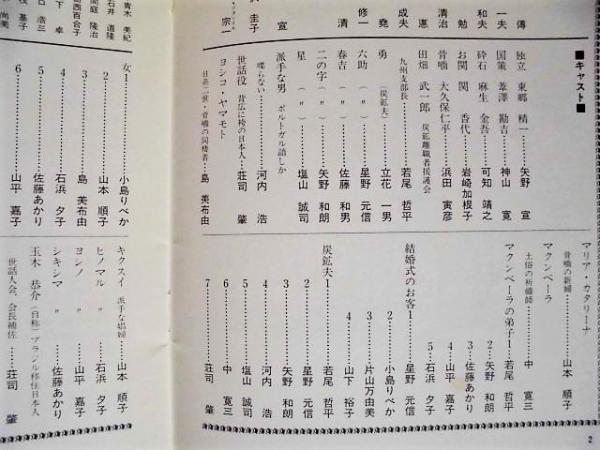 ■キャスト■
独立 東郷 精一……矢野 宣
国策 葦澤 勘吉……神山 寛
砕石 麻生 金吾……可知 靖之
お関 関 香代……岩崎加根子
骨噛 大久保仁平……浜田 寅彦
田畑 武一郎 炭鉱離職者援護会
九州支部長……若尾 哲平
勇 (炭鉱夫)……立花 一男
六助 (〃)……星野 元信
春吉 (〃)……佐藤 和男
二の字 (〃)……矢野 和朗
星 (〃)……塩山 誠司
派手な男 ポルトガル語しか
喋らない……河内 浩
世話役 背広に袴の日本人……荘司 肇
ヨシコ・ヤマモト
日系二世・骨噛の同棲者……島 美布由
マリア・カタリーナ
骨噛の新婦……山本 順子
マクンベーラ
土俗の祈禱師……中 寛三
マクンベーラの弟子1……若尾 哲平
2……矢野 和朗
3……佐藤あかり
4……山平 嘉子
5……石浜 夕子
結婚式のお客1……星野 元信
2……小島りべか
3……片山万由美
4……山下 裕子
炭鉱夫1……若尾 哲平
2……星野 元信
3……矢野 和朗
4……河内 浩
5……塩山 誠司
6……中 寛三
7……荘司 肇
女1……小島りべか
2……山本 順子
3……島 美布由
4……石浜 夕子
5……佐藤あかり
6……山平 嘉子
キクスイ 派手な娼婦……山本 順子
ヒノマル 〃……石浜 夕子
ヨシノ 〃……山平 嘉子
シキシマ 〃……佐藤あかり
玉木 恭介 (自称)ブラジル移住日本人
世話人会、会長補佐……荘司 肇
傳
一夫
和夫
勉
清治
憲
成夫
堯
修一
清
宣
圭子
宗一
青木 美紀
石井 道隆
間庭 隆治
西百合子
下 卓
口 浩三
基子
尚美
2